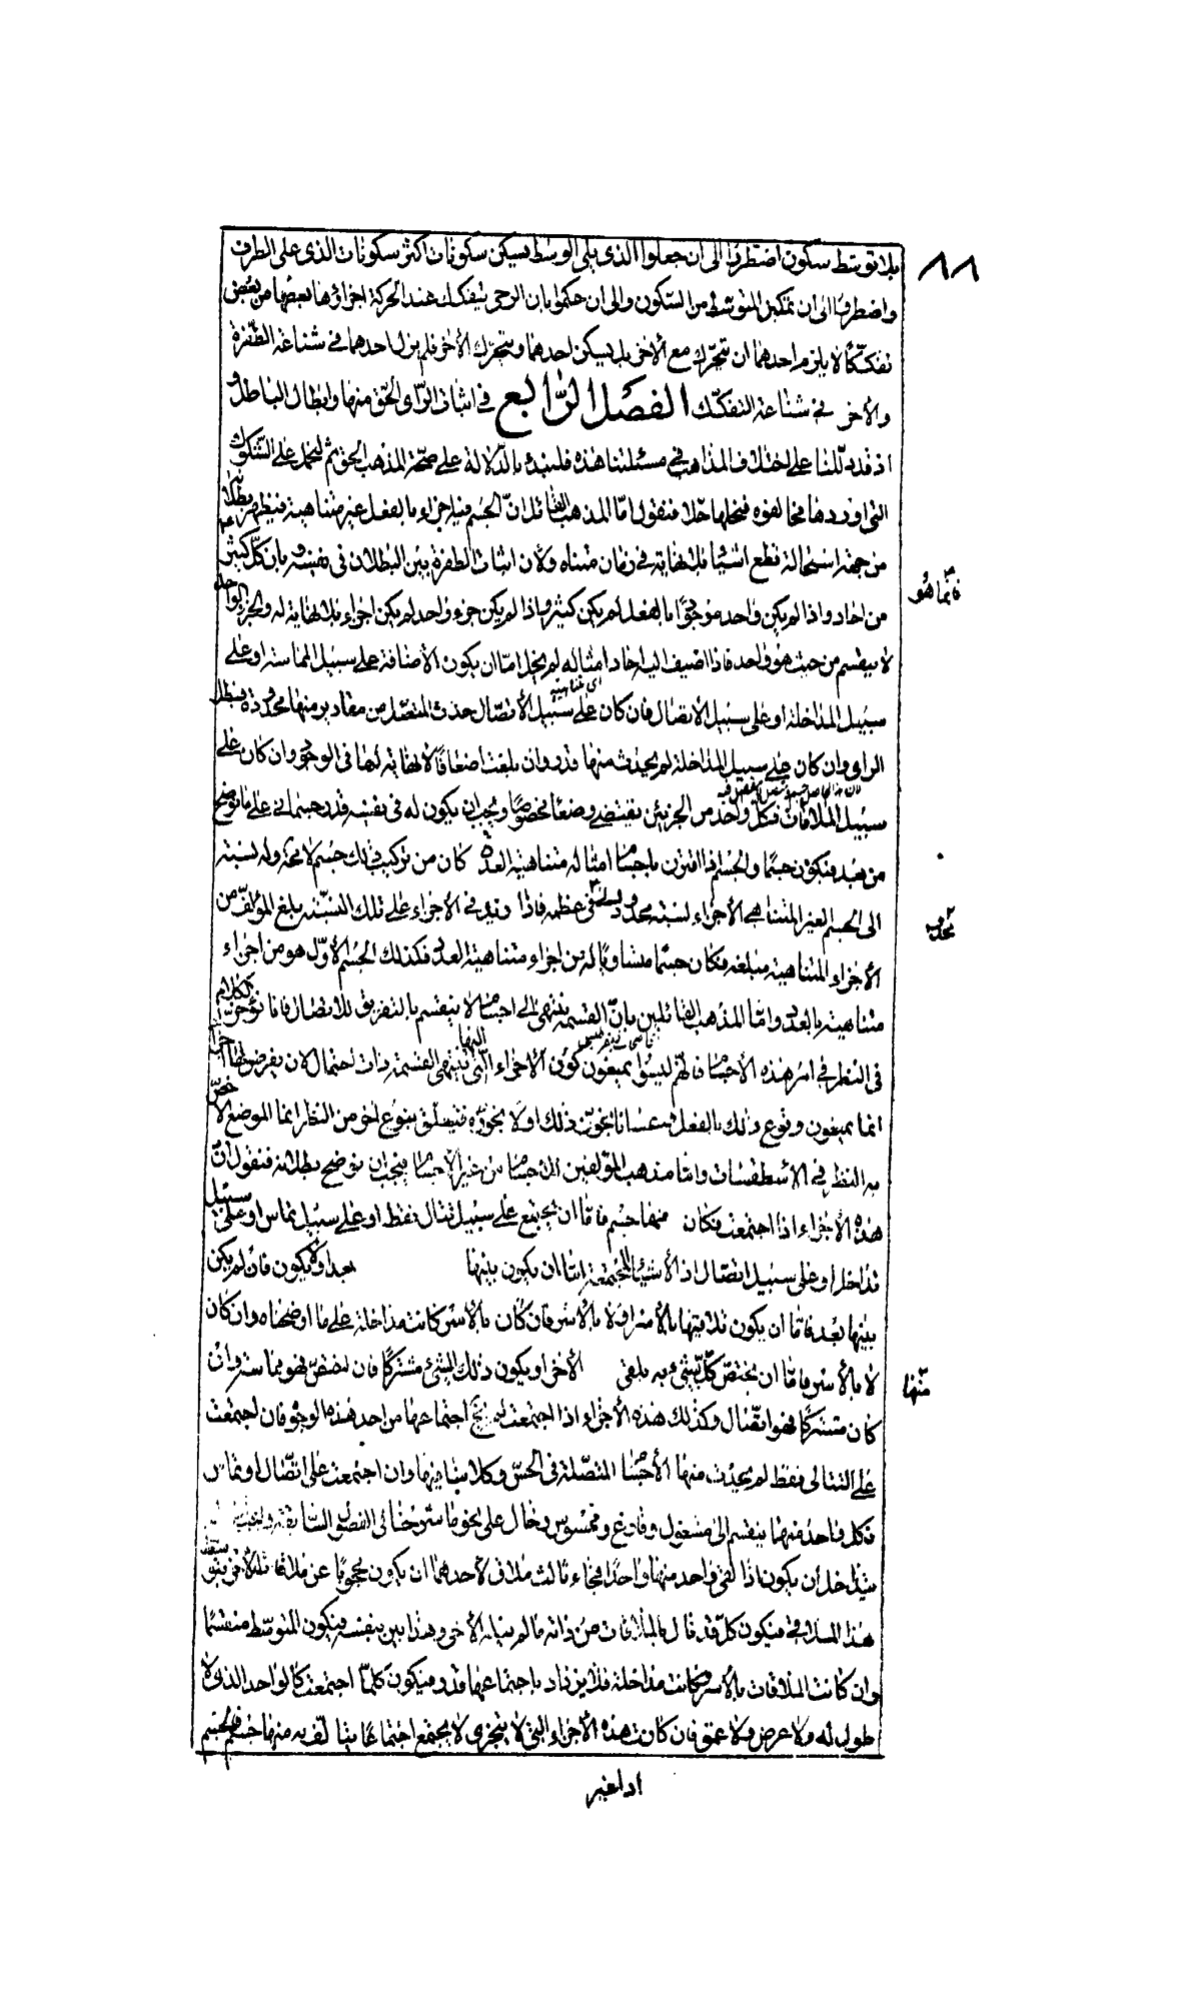 ٨٨
بلا توسط سكون اضطروا الى ان جعلوا الذى يلى الوسط يسكن سكونات اكثر سكونات الذى على الطرف
واضطروا الى ان تمكين المتوسط من السكون والى ان حكموا بان الرحى تتفكك عند الحركة اجزاؤها بعضها من بعض
تفككا لا يلزم احدهما ان تتحرك مع الآخر بل يسكن احدهما ويتحرك الآخر فلم يزل احدهما فى شناعة الطفرة
والآخر فى شناعة التفكك الفصل الرابع فى اثبات الراى الحق منها وابطال الباطل و
اذ قد دللنا على اختلاف المذاهب فى مسئلتنا هذه فلنبدء بالدلالة على صحة المذهب الحق ثم لنحمل على الشكوك
التى اوردها مخالفوه فنحلها حلا فنقول اما المذهب القائل ان الجسم فيه اجزاء بالفعل غير متناهية فيظهر بطلانه
من جهة استحالة قطع اشياء بلا نهاية فى زمان متناه ولان اثبات الطفرة بين البطلان فى نفسه وبان كل كثير
فانما هو
من احاد واذا لم يكن واحد موجودا بالفعل لم يكن كثير واذا لم يكن جزء واحد لم يكن اجزاء بلا نهاية له والجزء الواحد
لا ينقسم من حيث هو واحد فاذا اضيف اليه احاد امثاله لم يخل اما ان يكون الاضافة على سبيل المماسة او على
سبيل المداخلة او على سبيل الاتصال فان كان على سبيل الاتصال حدث المتصل من مقادير منها محدودة فبطل
الراى وان كان على سبيل المداخلة لم يحدث منها قدر وان بلغت اضعافا لا نهاية لها فى الوجود وان كان على
سبيل الملاقات فكل واحد من الجزئين يقتضى وضعا مخصوصا ويجب ان يكون له فى نفسه قدر جسمانى على ما نوضح
من بعد فيكون جسما والجسم اذا اقترن باجسام امثاله متناهية العدد كان من تركيب ذلك جسم لا محة وله نسبة
الى الجسم الغير المتناهى الاجزاء نسبة محدود الى محدود فى عظمه فاذا زيد فى الاجزاء على تلك النسبة بلغ المؤلف من
الاجزاء المتناهية مبلغه فكان جسما مساويا له من اجزاء متناهية العدد فكذلك الجسم الاول هو من اجزاء
متناهية بالعدد واما المذهب القائلين بان القسمة ينتهى الى اجسام لا ينقسم بالتفريق للاتصال فانا نؤخر الكلام
فى النظر فى امر هذه الاجسام فانهم ليسوا يمنعون كون الاجزاء التى ينتهى اليها القسمة ذات احتمال لان يفرض لها اجزاء
انما يمنعون وقوع ذلك بالفعل وعسانا نجوز ذلك او لا نجوزه فيتعلق بنوع اخر من النظر انما الموضع الاخص
به النظر فى الاسطقسات واما مذهب المؤلفين الاجسام من غير الاجسام فيجب ان نوضح بطلانه فنقول ان
هذه الاجزاء اذا اجتمعت فكان منها جسم فاما ان يجتمع على سبيل تتال فقط او على سبيل تماس او على سبيل
تداخل او على سبيل اتصال اذ الاشياء المجتمعة اما ان يكون بينها بعد او لا يكون فان لم يكن
بينها بعد فاما ان يكون تلاقيها بالاسر او لا بالاسر فان كان بالاسر كانت مداخلة على ما اوضحناه وان كان
لا بالاسر فاما ان يختص كل بشئ به يلقى الآخر او يكون ذلك الشئ مشتركا فان اختص فهو مماسة وان
منها
كان مشتركا فهو اتصال وكذلك هذه الاجزاء اذا اجتمعت لم يخ اجتماعها من احد هذه الوجوه فان اجتمعت
على التتالى فقط لم يحدث منها الاجسام المتصلة فى الحس وكلامنا فيها وان اجتمعت على اتصال او تماس
فكل واحد منها ينقسم الى مشغول وفارغ وممسوس وخال على نحو ما شرحنا فى الفصول السابقة
يتداخل ان يكون اذا لقى واحد منها واحدا فجاء ثالث ملاق لاحدهما ان يكون محجوبا عن ملاقاة الآخر بتوسط
هذا الملاقى فيكون كل قد نال بالملاقات من ذاته ما لم ينله الآخر وهذا بين بنفسه فيكون المتوسط منقسما
وان كانت الملاقات بالاسر كانت مداخلة فلا يزداد باجتماعها قدر فيكون كلما اجتمعت كالواحد الذى لا
طول له ولا عرض ولا عمق فان كانت هذه الاجزاء التى لا يتجزى لا يجتمع اجتماعا يتالف به منها جسم فالجسم